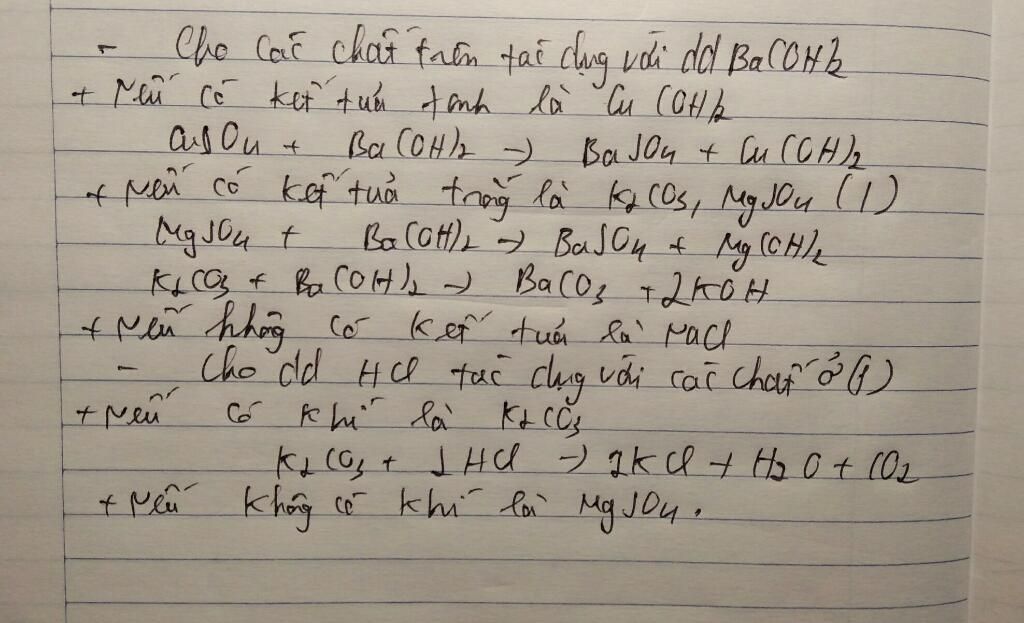 - Cho các chất trên tác dụng với dd Ba(OH)2
+ Nếu có kết tủa xanh là Cu(OH)2
CuSO4 + Ba(OH)2 → BaSO4 + Cu(OH)2
+ Nếu có kết tủa trắng là K2CO3, MgSO4 (1)
MgSO4 + Ba(OH)2 → BaSO4 + Mg(OH)2
K2CO3 + Ba(OH)2 → BaCO3 + 2KOH
+ Nếu không có kết tủa là NaCl
- Cho dd HCl tác dụng với các chất ở (1)
+ Nếu có khí là K2CO3
K2CO3 + 2HCl → 2KCl + H2O + CO2
+ Nếu không có khí là MgSO4.